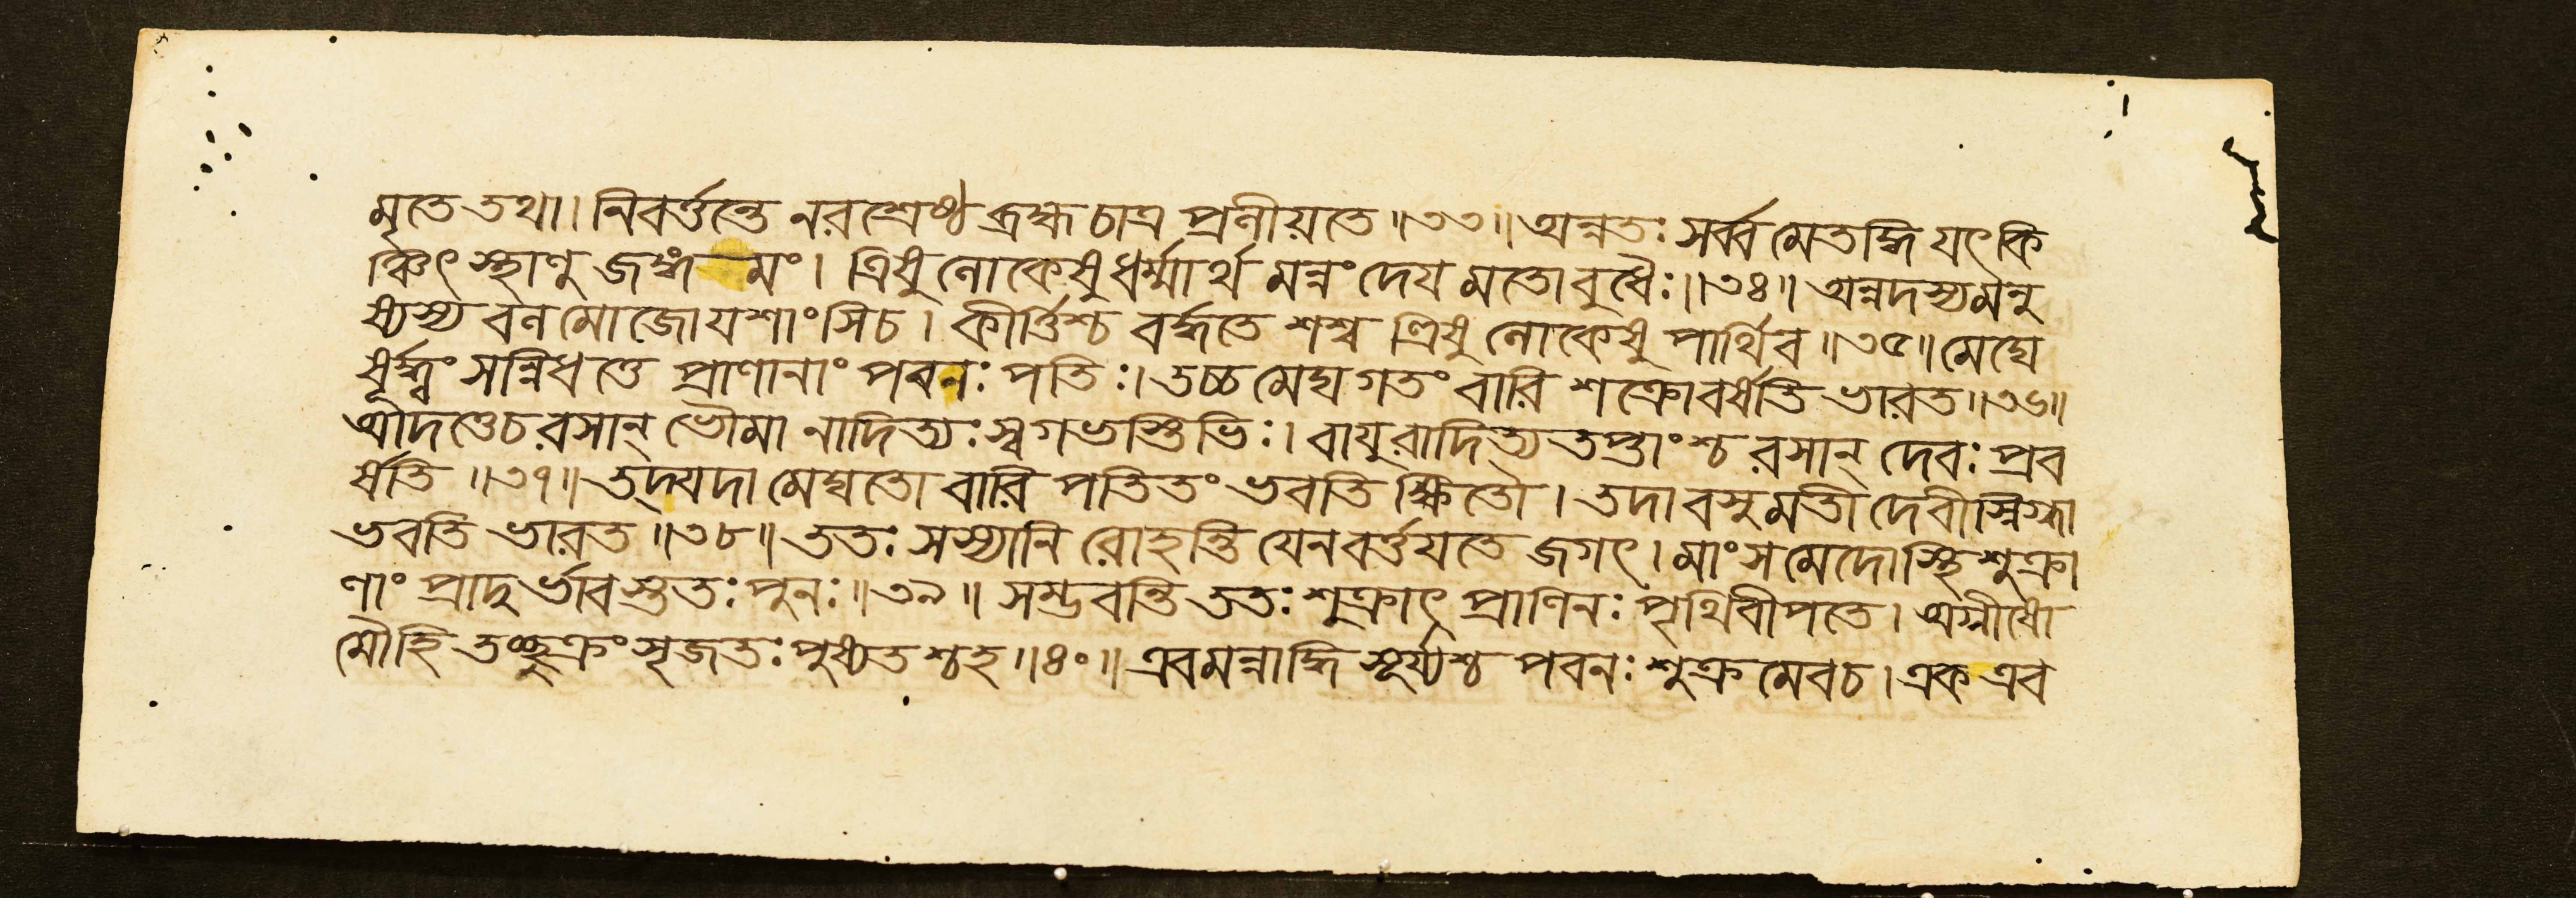 মৃতে তথা। নিবর্ত্তন্তে নরশ্রেষ্ঠ ব্রহ্ম চাত্র প্রনীয়তে॥৩৩॥ অন্নতঃ সর্ব্ব মেতদ্ধি যৎ কি
ঞ্চিৎ স্থাণু জঙ্গ মং। ত্রিষু লোকেষু ধর্ম্মার্থ মন্নং দেয মতো বুধৈঃ॥৩৪॥ অন্নদস্য মনু
ষ্যস্য বল মোজো যশাংসি চ। কীর্ত্তিশ্চ বর্দ্ধতে শশ্ব ত্রিষু লোকেষু পার্থিব॥৩৫॥ মেঘে
ষূর্দ্ধ্বং সন্নিধত্তে প্রাণানাং পবনঃ পতিঃ। তচ্চ মেঘ গতং বারি শক্রো বর্ষতি ভারত॥৩৬॥
আদত্তে চ রসান্ ভৌমা নাদিত্যঃ স্বগভস্তিভিঃ। বাযুরাদিত্য তপ্তাংশ্চ রসান্ দেবঃ প্রব
র্ষতি॥৩৭॥ তদ্যদা মেঘতো বারি পতিতং ভবতি ক্ষিতৌ। তদা বসুমতী দেবী স্নিগ্ধা
ভবতি ভারত॥৩৮॥ ততঃ সস্যানি রোহন্তি যেন বর্ত্তযতে জগৎ। মাংস মেদোস্থি শুক্রা
ণাং প্রাদুর্ভাবস্ততঃ পুনঃ॥৩৯॥ সম্ভবন্তি ততঃ শুক্রাৎ প্রাণিনঃ পৃথিবীপতে। অগ্নীষো
মৌ হি তচ্ছুক্রং সৃজতঃ পুষ্যতশ্চ হ॥৪০॥ এবমন্নাদ্ধি সূর্য্যশ্চ পবনঃ শুক্র মেব চ। এক এব